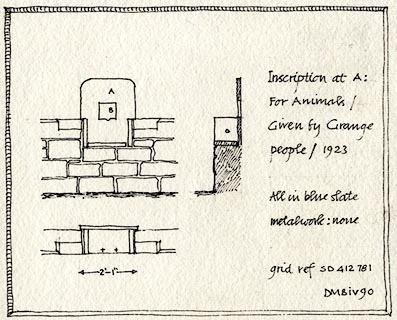 A
B
B
2'-1"
Inscription at A:
For Animals /
Given by Grange
people / 1923
All in blue slate
metalwork: none
grid ref SD 412 781
DMB iv 90